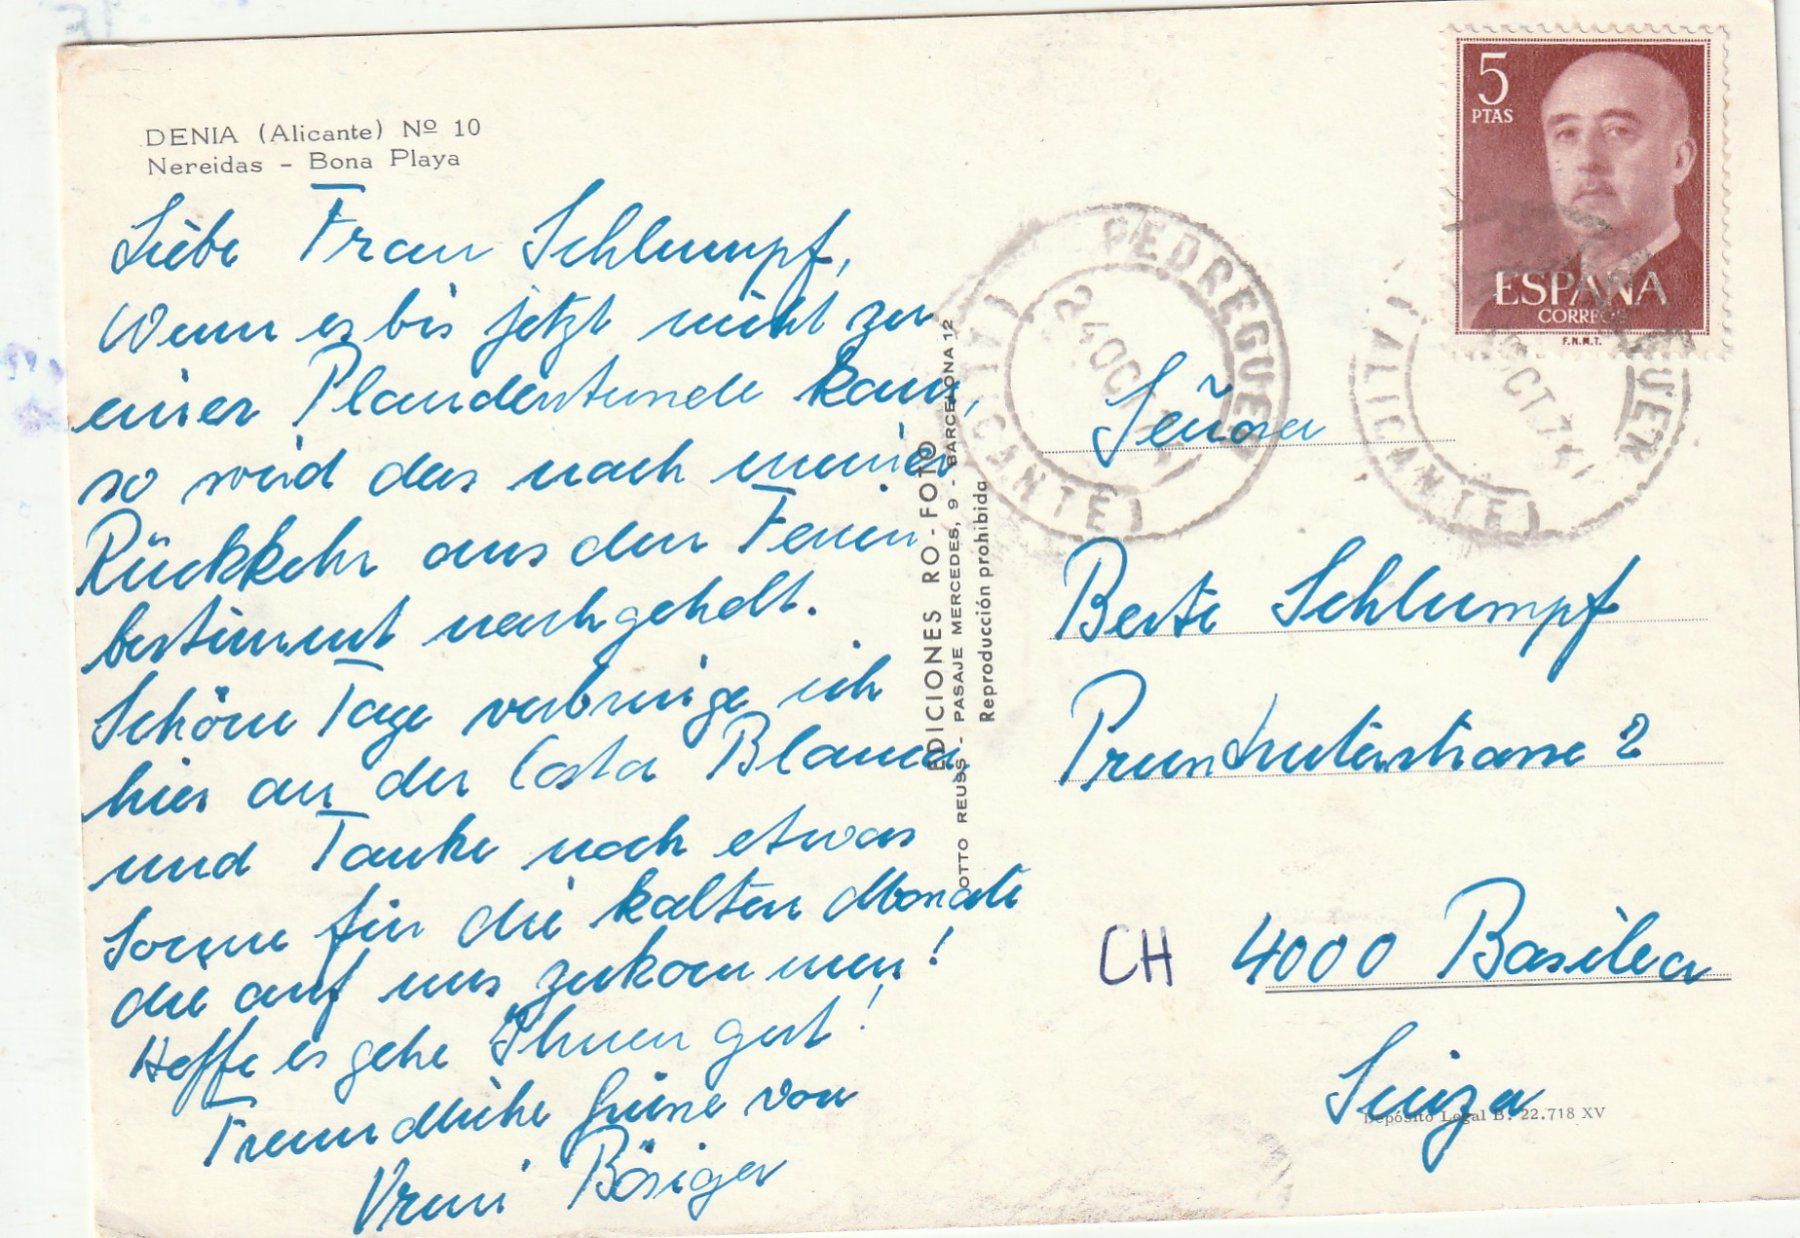 DENIA (Alicante) Nº 10
Nereidas - Bona Playa
Liebe Frau Schlumpf,
Wenn es bis jetzt nicht zu
einer Plauderstunde kam,
so wird das nach meiner
Rückkehr aus den Ferien
bestimmt nachgeholt.
Schöne Tage verbringe ich
hier an der Costa Blanca
und Tanke noch etwas
Sonne für die kalten Monate
die auf uns zukommen!
Hoffe es gehe Ihnen gut!
Freundliche Grüsse von
Vreni Bösiger
EDICIONES RO-FOTO
OTTO REUSS - PASAJE MERCEDES, 9 - BARCELONA 12
Reproducción prohibida
5
PTAS
ESPAÑA
CORREOS
F.N.M.T.
PEDREGUER
24 OCT 74
(ALICANTE)
OCT 74
(ALICANTE)
Señora
Berti Schlumpf
Pruntruterstrasse 2
CH 4000 Basilea
Suiza
Depósito Legal B. 22.718 XV